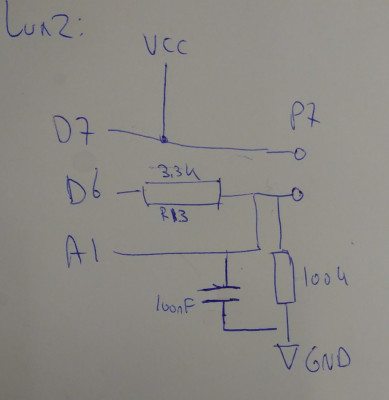 Lun2:
VCC
D7
P7
3.3k
D6
R13
A1
100k
100nF
GND